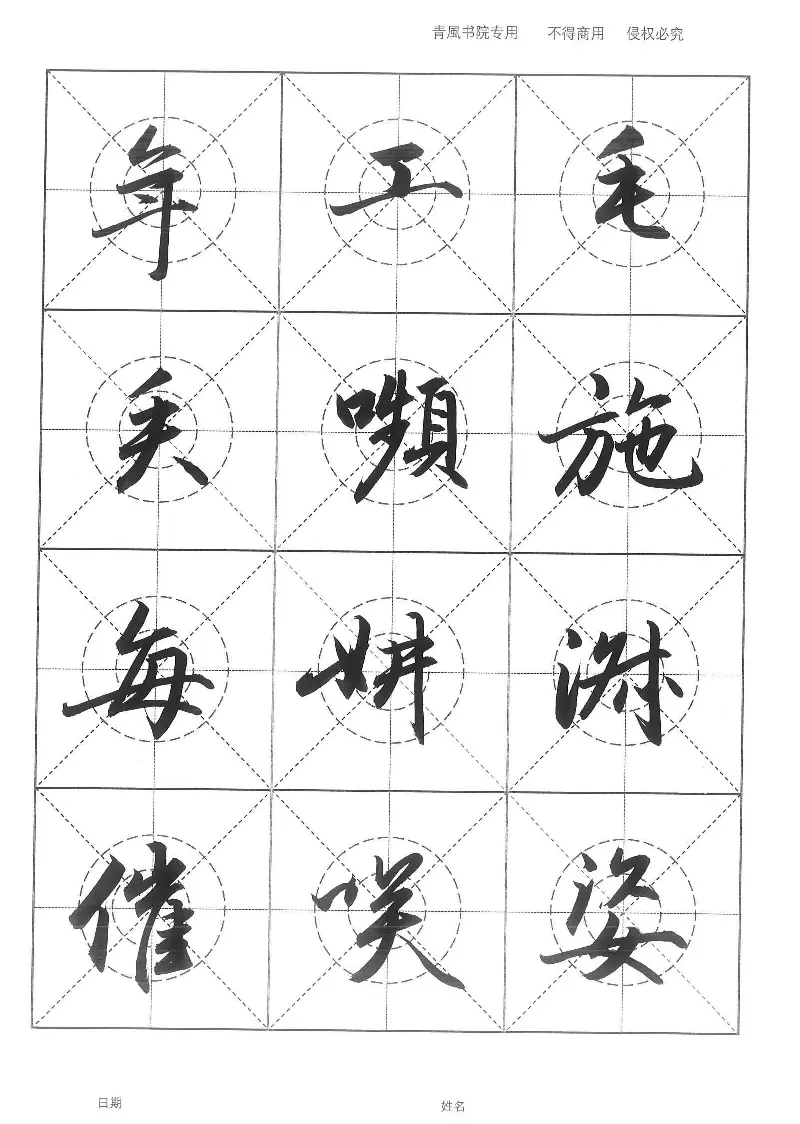 青風书院专用 不得商用 侵权必究
毛施淑姿
工嚬妍咲
年矢每催
日期 姓名